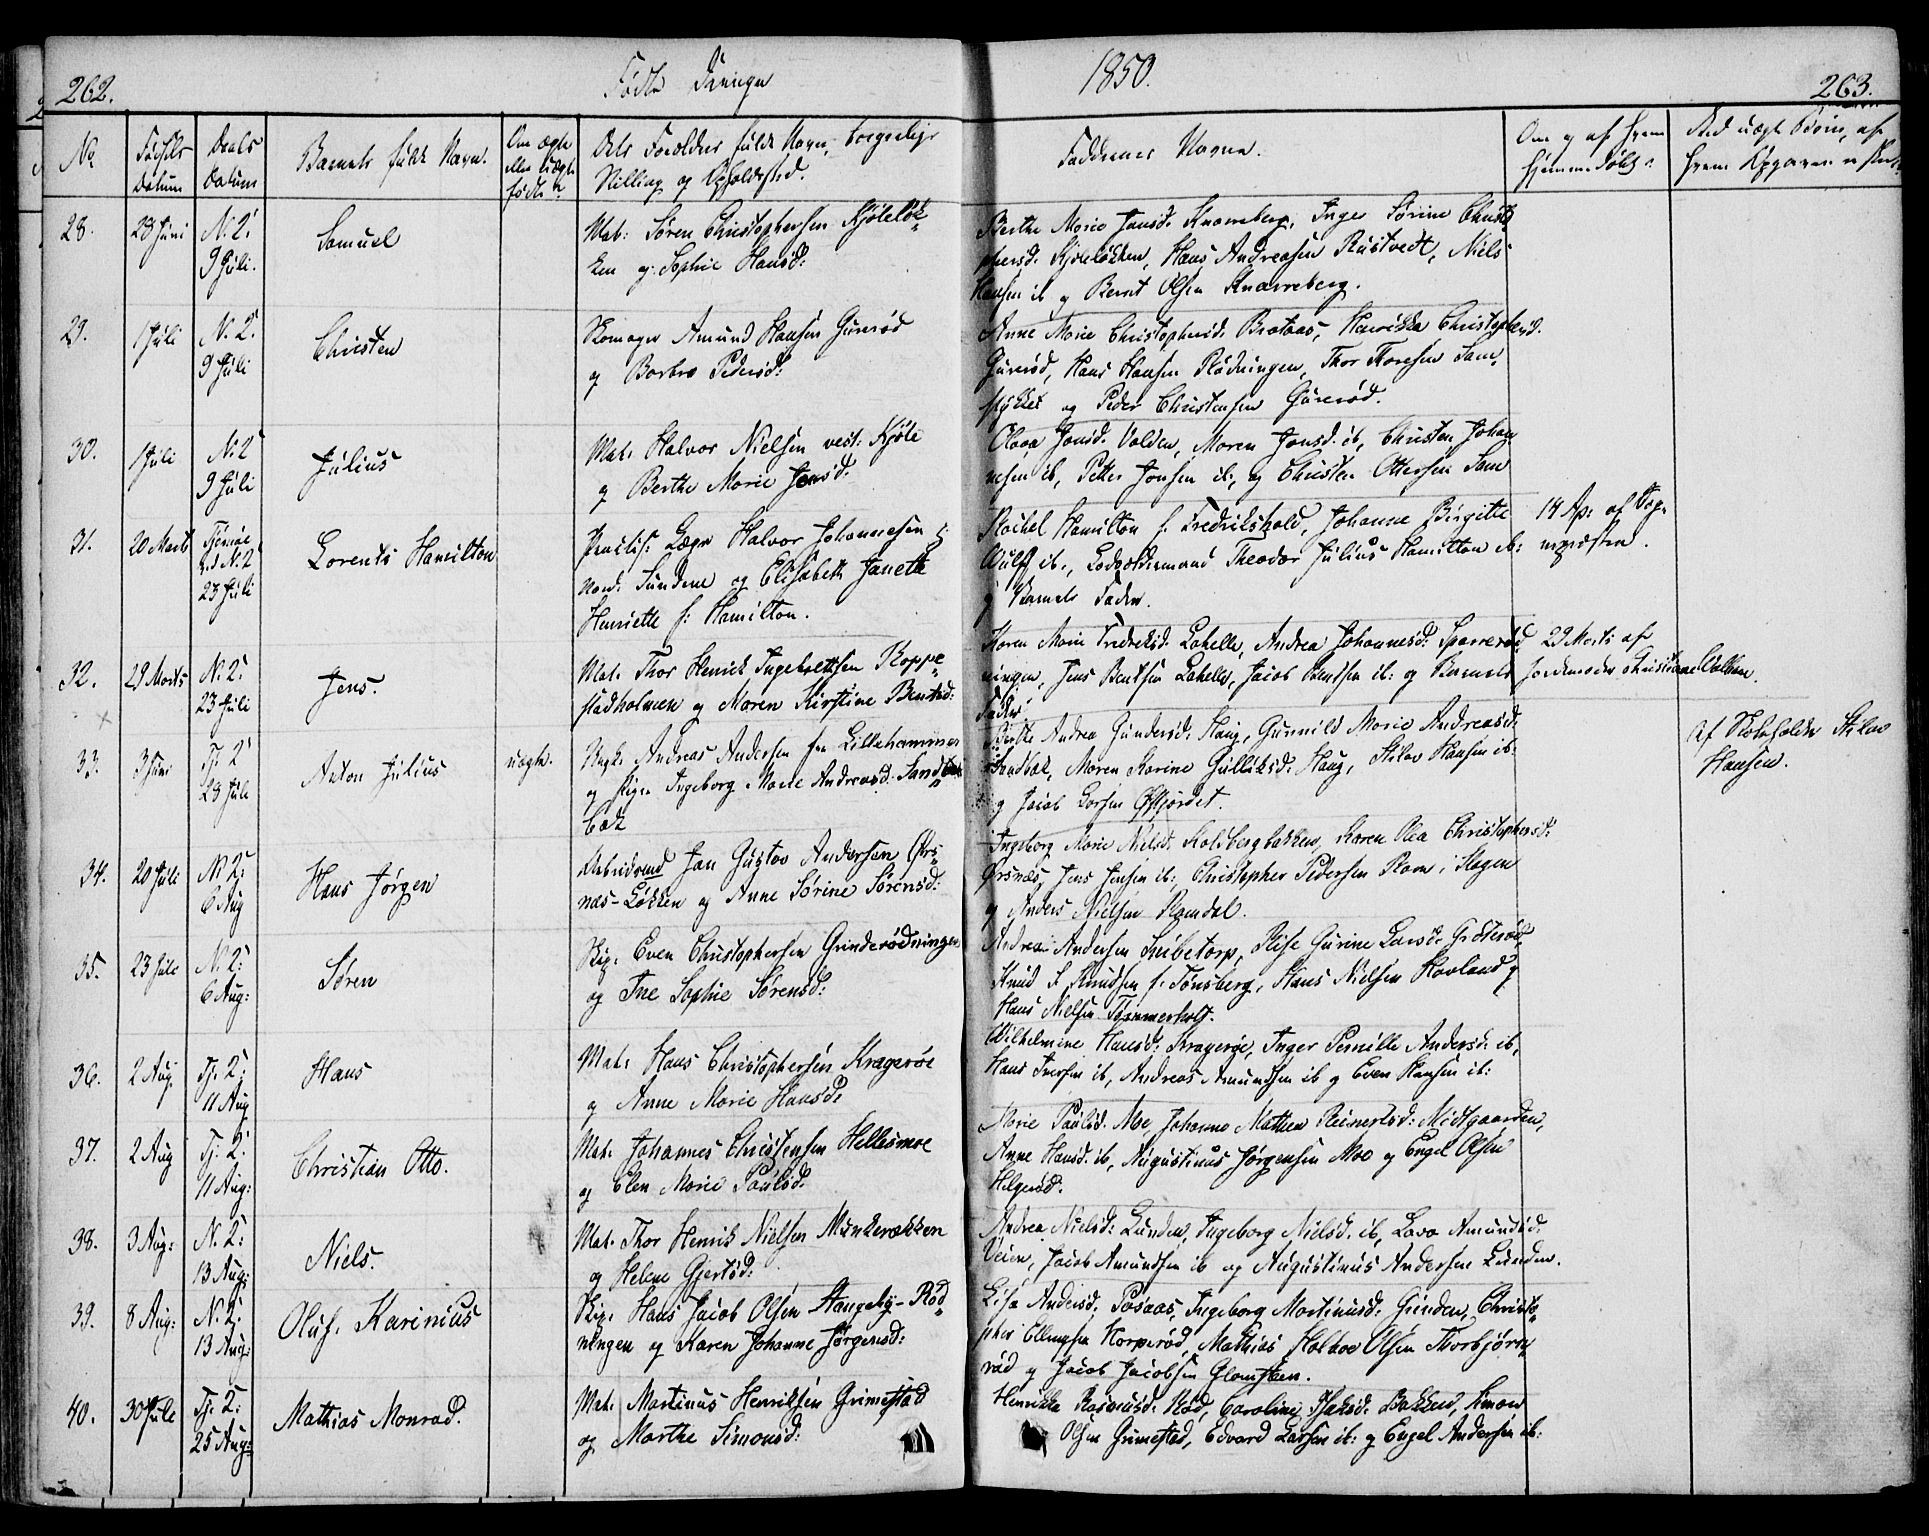 262.
Fødte Drenge
1850.
263.
No
Fødsels Datum
Daabs Datum
Barnets fulde Navn.
Om ægte eller uægte født
Dets Forældres fulde Navn, borgerlige
Stilling og Opholdssted.
Faddernes Navne.
Om og af hvem
hjemmedøbt
28.
28 Juni
N. 2:
9 Juli.
Samuel
Mat: Søren Christophersen Kjøleløk„
ken og Sophie Hansd:
Berthe Marie Jansd. Knarreberg, Inger Sørine Christo
phersd. Kjøleløkken, Hans Andreasen Rustvedt, Niels
Hansen ib og Bernt Olsen Knarreberg.
29.
1 Juli
N. 2:
9 Juli
Christen
Skomager Amund Hansen Gurerød
og Barbro Pedersd:
Anne Marie Christophersd. Brataas, Henrikka Christophersd.
Gurerød, Hans Hansen Rødningen, Thor Thoresen Sam„
stykket og Peder Christensen Gurerød.
30.
1 Juli
N. 2
9 Juli
Julius
Mat. Halvor Nielsen vest: Kjøle
og Berthe Marie Jensd:
Olava Jonsd. Volden, Maren Jonsd. ib, Christen Johan
nesen ib, Petter Jonsen ib, og Christen Ottersen Sam
31.
20 Marts
Tjømøe
N. 2
23 Juli
Lorents Hamilton
Practis: Læge Halvor Johannesen
nord: Sundene og Elisabeth Janette
Henriette f: Hamilton.
Rachel Hamilton f. Fredrikshald, Johanne Birgitte
Wulff ib., Theodor Julius Hamilton ib:
og Barnets Fader.
14 Ap: af Sog„
nepræsten.
32.
29 Marts
N. 2:
23 Juli
Jens.
Mat. Thor Henrick Ingebretsen Koppe„
stadholmen og Maren Kirstine Bentsd:
Karen Marie Fredriksd. Lahelle, Andrea Johannesd: Sparrerød
ningen, Jens Bentsen Lahelle, Jacob Bentsen ib: og Barnets
Fader
29 Marts af
Jordemoder Christiane
33.
3 Juni
Tj. 2
28 Juli
Anton Julius
uægte.
Ungk. Andreas Andersen fra Lillehammer
og Pige Ingeborg Marie Andreasd. Sand„
bæk
Berthe Andrea Gundersd. Haug, Gunnild Marie Andreasd:
Sandbæk, Maren Karine Gulliksd. Haug, Hilov Hansen ib:
og Jacob Larsen Østjordet.
Af Skoleholder Hilov
Hansen.
34.
20 Juli
N. 2:
6 Aug
Hans Jørgen
Arbeidsmd Jan Gustav Andersen Ørs„
næs-Løkken og Anne Sørine Sørensd:
Ingeborg Marie Nielsd. Kolsbergbakken, Karen Olea Christophersd:
Ørsnæs, Jens Jensen ib., Christopher Pedersen Ravn i Slagen
og Anders Nielsen Ramdal.
35.
23 Juli
N. 2:
6 Aug:
Søren
Skip. Even Christophersen Grinderødningen
og Ine Sophie Sørensd:
Andrea Andersen Smibetorp, Else Gurine Larsd. Grøterød,
Knud F. Knudsen f. Tønsberg, Hans Nielsen Havland og
Hans Nielsen Tømmerholt.
36.
2 Aug.
Tj. 2:
11 Aug
Hans
Mat. Hans Christophersen Kragerøe
og Anne Marie Hansd.
Wilhelmine Hansd: Kragerøe, Inger Pernille Andersd: ib,
Hans Iversen ib, Andreas Amundsen ib og Even Hansen ib:
37.
2 Aug
Tj. 2:
11 Aug:
Christian Otto.
Mat. Johannes Christensen Hellesmoe
og Elen Marie Paulsd:
Marie Paulsd. Moe, Johanne Mathea Reinertsd: Midtgaarden,
Anne Hansd. ib, Augustinus Jørgensen Moe og Engel Olsen
Helgerød.
38.
3 Aug:
N. 2:
13 Aug:
Niels.
Mat. Thor Henrik Nielsen Munkerækken
og Helene Gjertsd:
Andrea Nielsd: Lunden, Ingeborg Nielsd. ib, Lava Amundsd.
Veien, Jacob Amundsen ib og Augustinus Andersen Lunden.
39.
8 Aug:
N. 2:
13 Aug:
Oluf Karinius
Skip. Hans Jacob Olsen Stangeby-Rød„
ningen og Karen Johanne Jørgensd:
Lisa Andersd. Posaas, Ingeborg Martinusd: Grinden, Christo„
pher Ellingsen Horperød, Mathias Halvor Olsen Thorbjørns„
rød og Jacob Jacobsen Glomsteen.
40.
30 Juli
Tj. 2:
25 Aug:
Mathias Monrad.
Mat. Martinus Henriksen Grimestad
og Marthe Simonsd:
Henrikka Rasmusd. Rød, Caroline Isaksd. Bakken, Simon
Olsen Grimestad, Edvard Larsen ib: og Engel Andersen ib: